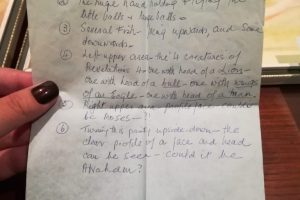 ② The huge hand holding
little balls & large balls -
③ Several Fish - King upwards, and some
downwards -
④ Left upper area - the 4 creatures of
Revelations 4 - one with head of a Lion -
one with head of a bull - one with wings
of an Eagle - one with head of a man.
⑤ Right upper area profile face could
be Moses - ?
⑥ Turning this partly upside down - the
clear profile of a face and head
can be seen - could it be
Abraham?